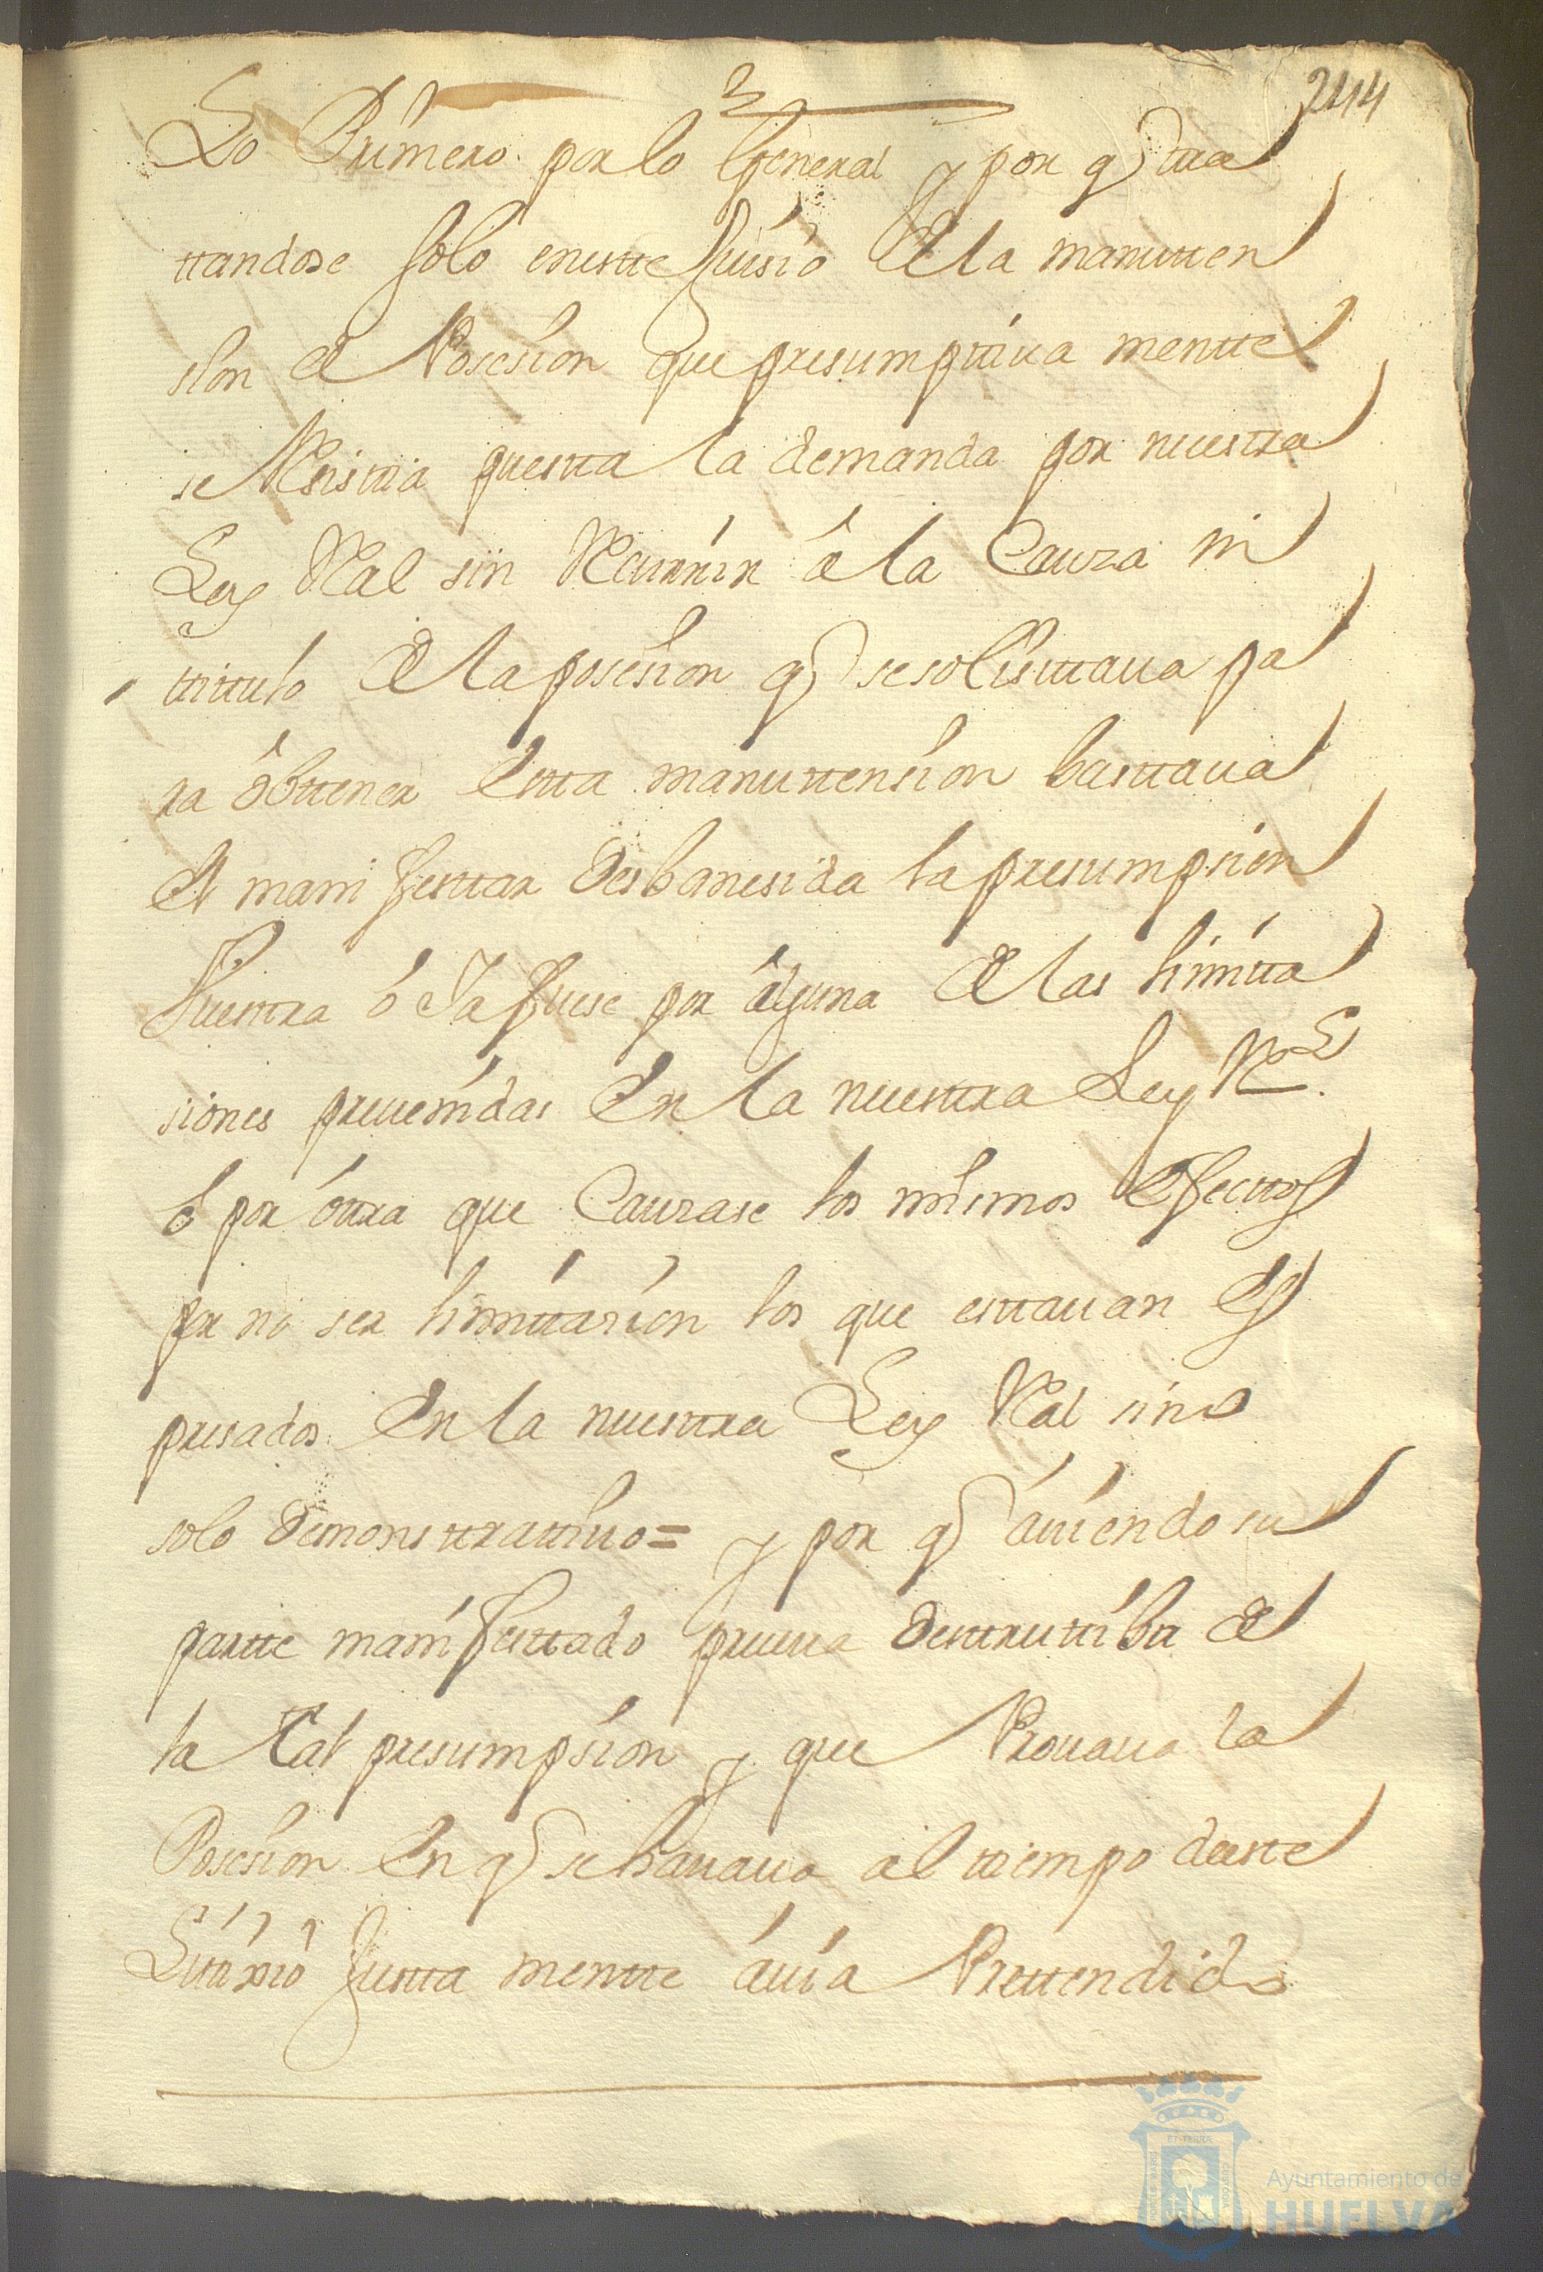 244
Lo Primero por lo General y por q tra
ttandose solo enestte Juisio de la manutten
sion de Posesion que presumptiua mentte
se Resistia puestta la demanda por nuestra
Ley Real sin Recurrir â la Cauza ni
tittulo de la posesion q se solisittaua pa
ra obttener Estta manuttension basttaua
el mani festtar desbanesida la presumpsion
Nuestra ó Ya fuese por âlguna de las limita
siones preuenidas En la nuestra Ley Rl.
ó por óttra que Cauzase los mismos efecttos
por no ser limittasion los que esttauan Es
presados En la nuestra Ley Real sino
solo demonstratiuo = y por q áuiendo su
partte mani festtado prueua desttruttiba de
la tal presumpsion y que Prouaua la
Posesion En q se hallaua al tiempo de este
Litixio Justta mentte áuia Prettendido
Ayuntamiento de
HUELVA